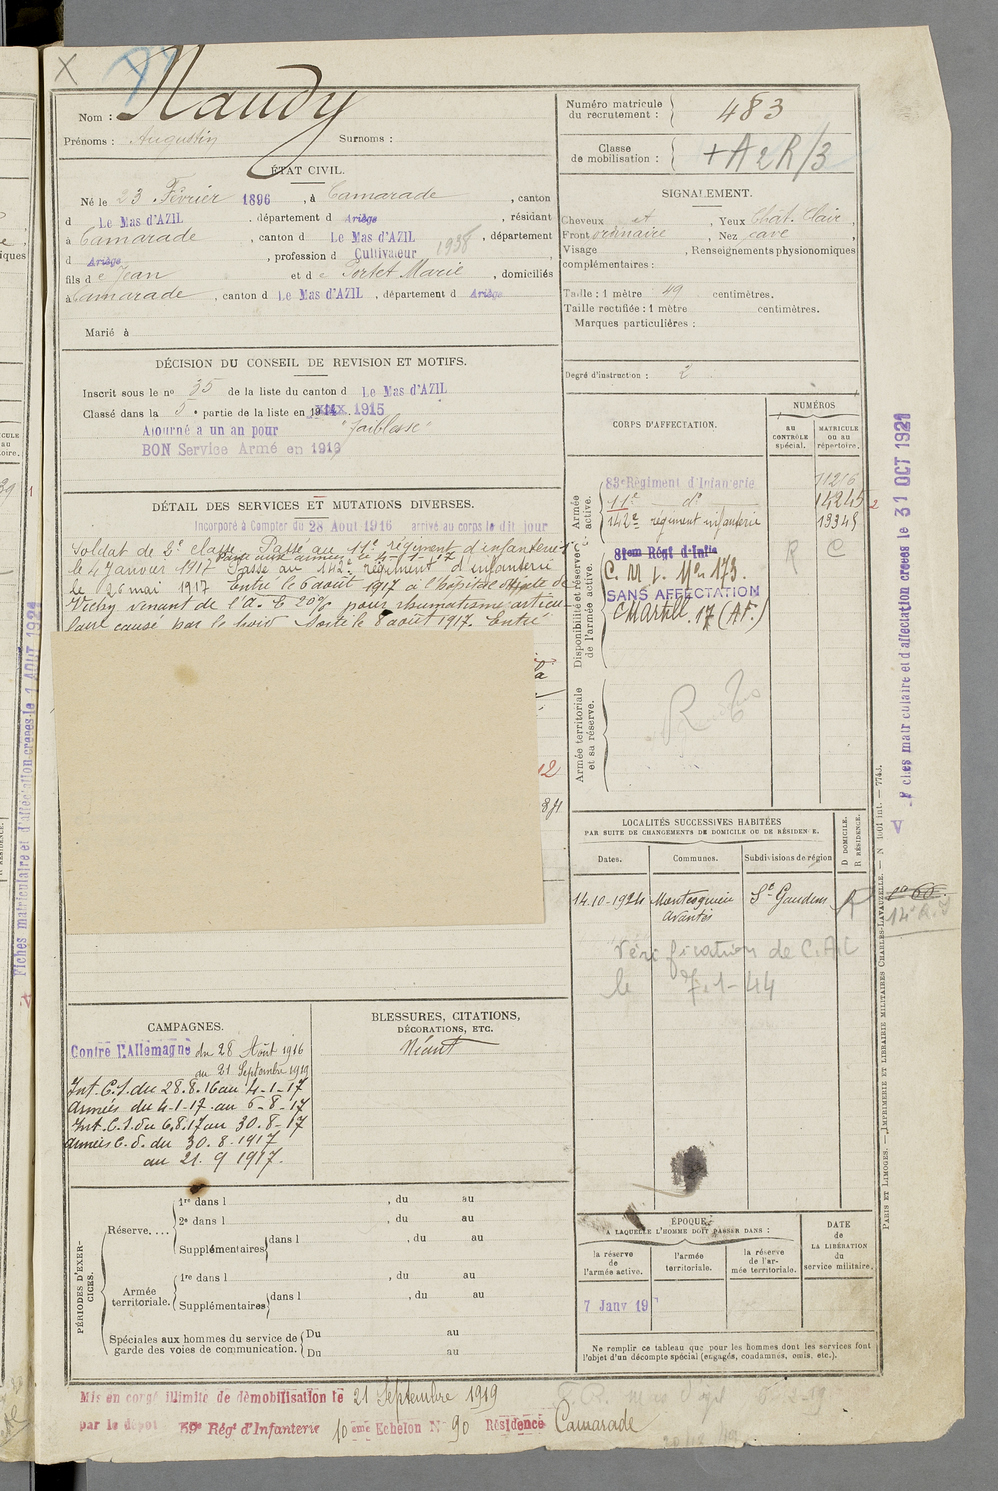 Nom : Naudy
Prénoms : Augustin Surnoms :
ÉTAT CIVIL.
Né le 23 Février 1896, à Camarade, canton
d Le Mas d'AZIL, département d Ariège, résidant
à Camarade, canton d Le Mas d'AZIL, département
d Ariège, profession d Cultivateur 1938
fils de Jean et de Portet Marie, domiciliés
à Camarade, canton d Le Mas d'AZIL, département d Ariège
Marié à
DÉCISION DU CONSEIL DE REVISION ET MOTIFS.
Inscrit sous le n° 35 de la liste du canton d Le Mas d'AZIL
Classé dans la 5e partie de la liste en 1915
Ajourné a un an pour "faiblesse"
BON Service Armé en 1916
DÉTAIL DES SERVICES ET MUTATIONS DIVERSES.
Incorporé à Compter du 28 Aout 1916 arrivé au corps le dit jour
Soldat de 2e classe. Passé au 11e régiment d'infanterie
le 4 Janvier 1917 Passé au 142e régiment d'infanterie
le 26 mai 1917 Entré le 6 août 1917 à l'hôpital de
Vichy venant de l'a. pour rhumatisme articu
laire causé par le froid Sorti le 8 août 1917. Entré
CAMPAGNES.
Contre l'Allemagne du 28 Août 1916
au 21 Septembre 1919
Int. C.S. du 28.8.16 au 4-1-17
Armées du 4-1-17 au 6-8-17
Int. C.S. du 6.8.17 au 30.8-17
Armées C.S. du 30.8.1917
au 21.9 1917.
BLESSURES, CITATIONS,
DÉCORATIONS, ETC.
Néant
PÉRIODES D'EXERCICES.
Réserve....
1re dans l , du au
2e dans l , du au
Supplémentaires dans l , du au
Armée territoriale.
1re dans l , du au
Supplémentaires dans l , du au
Spéciales aux hommes du service de
garde des voies de communication.
Du au
Du au
Mis en congé illimité de démobilisation le 21 Septembre 1919
par le dépôt 59e Régt d'Infanterie 10 eme Echelon N° 90 Résidence Camarade
Numéro matricule
du recrutement : 483
Classe
de mobilisation : +A2R/3
SIGNALEMENT.
Cheveux , Yeux Chât. Clair,
Front ordinaire, Nez cave,
Visage , Renseignements physionomiques
complémentaires :
Taille : 1 mètre 49 centimètres.
Taille rectifiée : 1 mètre centimètres.
Marques particulières :
Degré d'instruction : 2
CORPS D'AFFECTATION.
NUMÉROS
au
CONTRÔLE
spécial.
MATRICULE
ou au
répertoire.
Armée
active.
83e Régiment d'Infanterie 11216
11e d° 14245
142e régiment infanterie 13345
Disponibilité et réserve
de l'armée active.
Régt d'Infie R C
C. M. I. 173.
SANS AFFECTATION
C Martill. 17 (AF.)
Armée territoriale
et sa réserve.
LOCALITÉS SUCCESSIVES HABITÉES
PAR SUITE DE CHANGEMENTS DE DOMICILE OU DE RÉSIDENCE.
D DOMICILE.
R RÉSIDENCE.
Dates. Communes. Subdivisions de région
14.10-1924 Montesquieu St Gaudens R
Avantès
Vérification de C.A.C
le 7-1-44
ÉPOQUE
A LAQUELLE L'HOMME DOIT PASSER DANS :
DATE
de
LA LIBÉRATION
du
service militaire.
la réserve
de
l'armée active.
l'armée
territoriale.
la réserve
de l'ar-
mée territoriale.
7 Janv 19
Ne remplir ce tableau que pour les hommes dont les services font
l'objet d'un décompte spécial (engagés, condamnés, omis, etc.).
PARIS ET LIMOGES. — IMPRIMERIE ET LIBRAIRIE MILITAIRES CHARLES-LAVAUZELLE. — N° 1001 int. — 7743.
Fiches matriculaire et d'affectation créées le 31 OCT 1921
Fiches matriculaire et d'affectation créées le 1 AOUT 1924
14e R.I